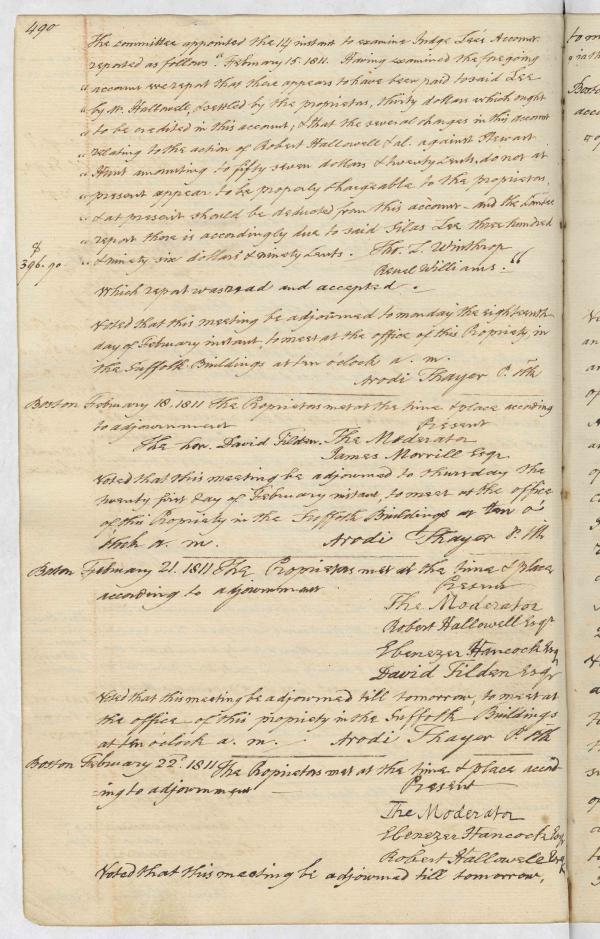 490
The committee appointed the 14 instant to examine Judge Lee's Account
reported as follows. "February 15. 1811. Having examined the foregoing
" account we report that there appears to have been paid to said Lee
" by R. Hallowell, & settled by the proprietors, thirty dollars which ought
" to be credited in this account, & that the several charges in this account
" relating to the action of Robert Hallowell & al. against Stewart
" Hunt amounting to fifty seven dollars & twenty Cents, do not at
" present appear to be properly chargeable to the proprietors,
" & at present should be deducted from this account - and the
" report there is accordingly due to said Silas Lee three hundred
" & ninety six dollars & ninety Cents. Tho. L. Winthrop
396.90
Reuel Williams."
Which report was read and accepted.
Voted that this meeting be adjourned to monday the eighteenth
day of February instant, to meet at the office of this Propriety, in
the Suffolk Buildings at ten o'clock a. m.
Arodi Thayer P. Clk
Boston February 18. 1811 The Proprietors met at the time & place according
to adjournment Present
The hon. David Tilden. The Moderator
James Morrill Esqr
Voted that this meeting be adjourned to thursday the
twenty first day of February instant, to meet at the office
of this Propriety in the Suffolk Buildings at ten o'
clock a. m. Arodi Thayer P. Clk
Boston February 21. 1811 The Proprietors met at the time & place
according to adjournment Present
The Moderator
Robert Hallowell Esqr
Ebenezer Hancock Esq
David Tilden Esqr
Voted that this meeting be adjourned till tomorrow, to meet at
the office of this propriety in the Suffolk Buildings
at ten o'clock a. m. Arodi Thayer P. Clk
Boston February 22. 1811 The Proprietors met at the time & place accord
-ing to adjournment Present
The Moderator
Ebenezer Hancock Esqr
Robert Hallowell Esqr
Voted that this meeting be adjourned till tomorrow,